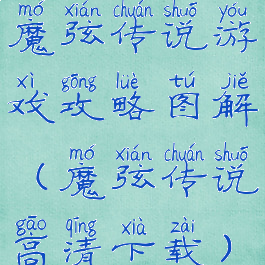 mó xián chuán shuō yóu
魔弦传说游
xì gōng lüè tú jiě
戏攻略图解
mó xián chuán shuō
(魔弦传说
gāo qīng xià zài
高清下载)